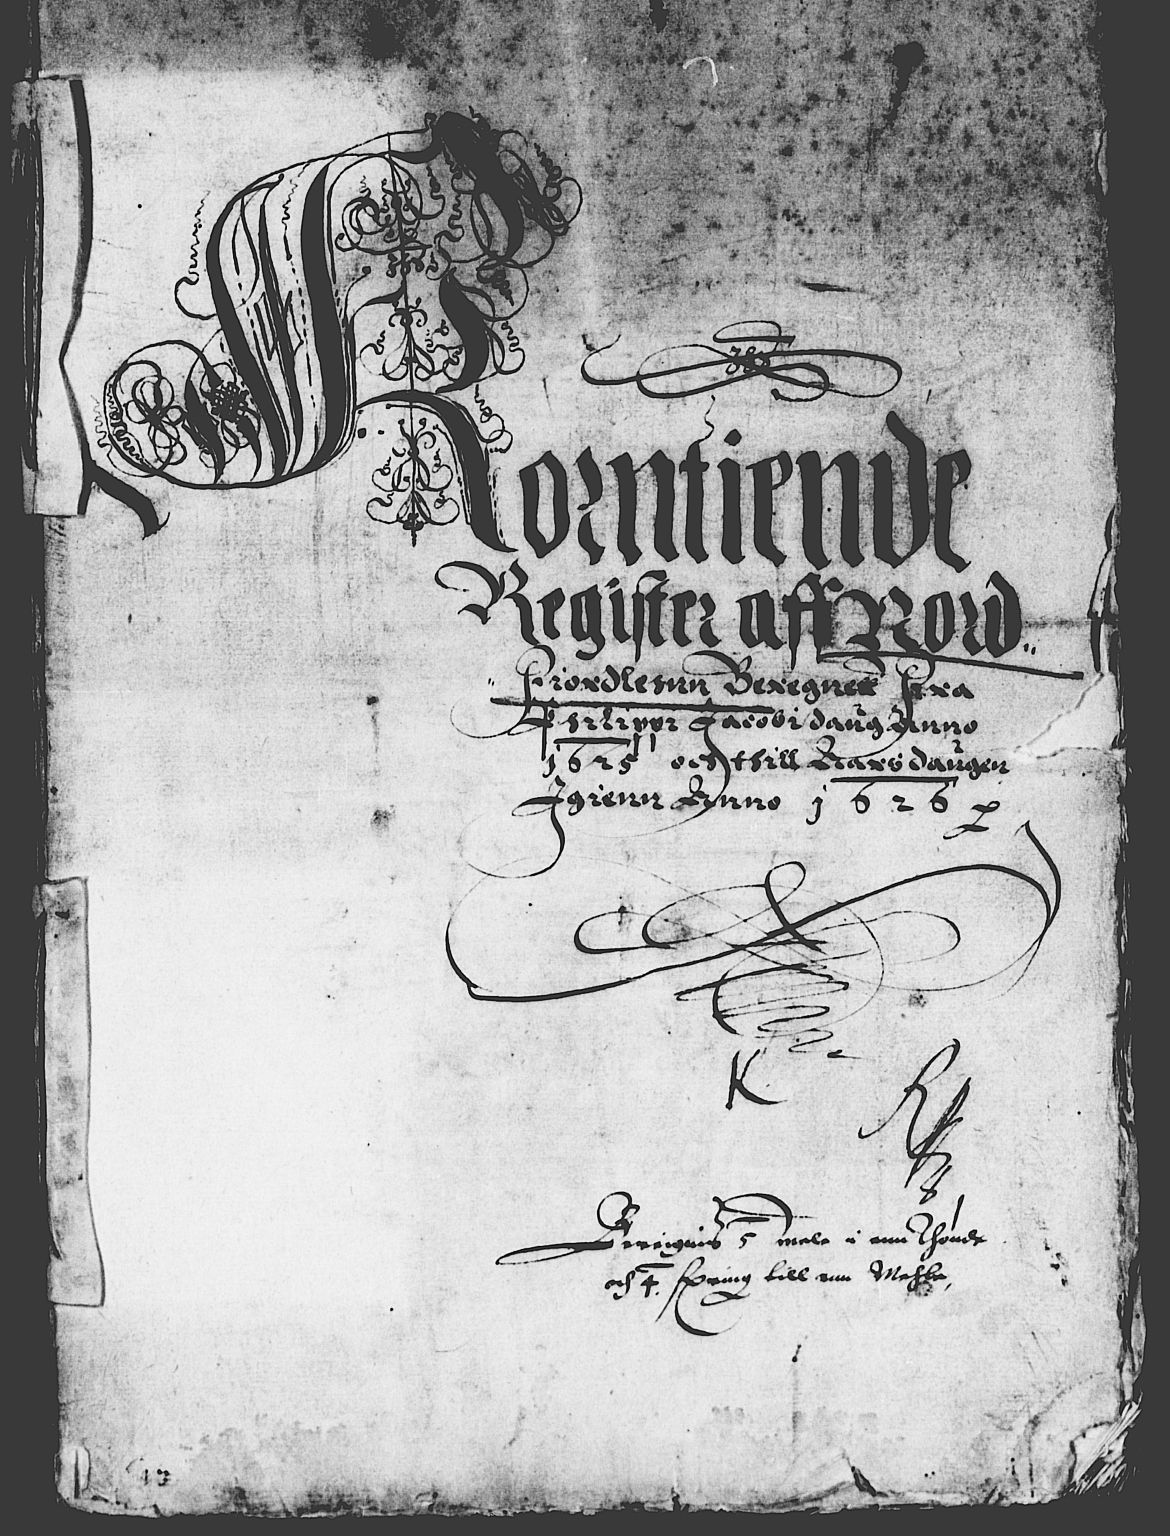 Korntiende
Register aff Nord
Fiordlenn Beregnet fra
Philippi Jacobi daug Anno
1625 och thill Aarsdaugen
Igienn Anno 1626
K
Beregnis 5 mele i enn Thønde
och 4 spring till enn Mehle,